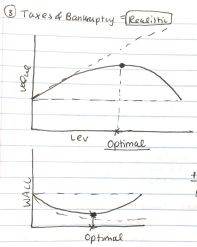 ③ Taxes & Bankruptcy = Realistic
Value
Lev
Optimal
WACC
Optimal